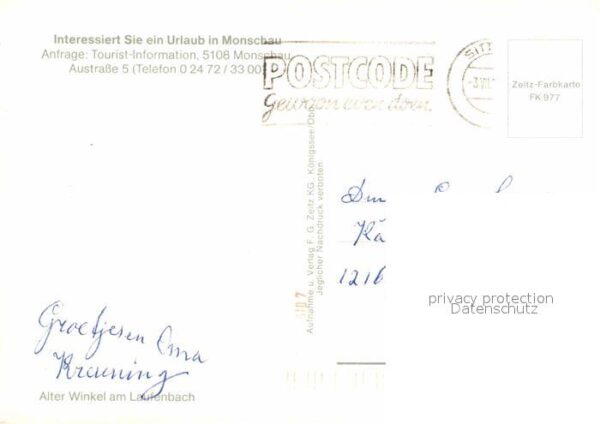 Interessiert Sie ein Urlaub in Monschau
Anfrage: Tourist-Information, 5108 Monschau
Austraße 5 (Telefon 0 24 72 / 33 00)
POSTCODE
Gewoon even doen.
SITT
-3.VII
Zeitz-Farbkarte
FK 977
Aufnahme u. Verlag F. G. Zeitz KG., Königssee/Obb.
Jeglicher Nachdruck verboten
Kä
1216
privacy protection
Datenschutz
Groetjesen Oma
Kreuning
Alter Winkel am Laufenbach